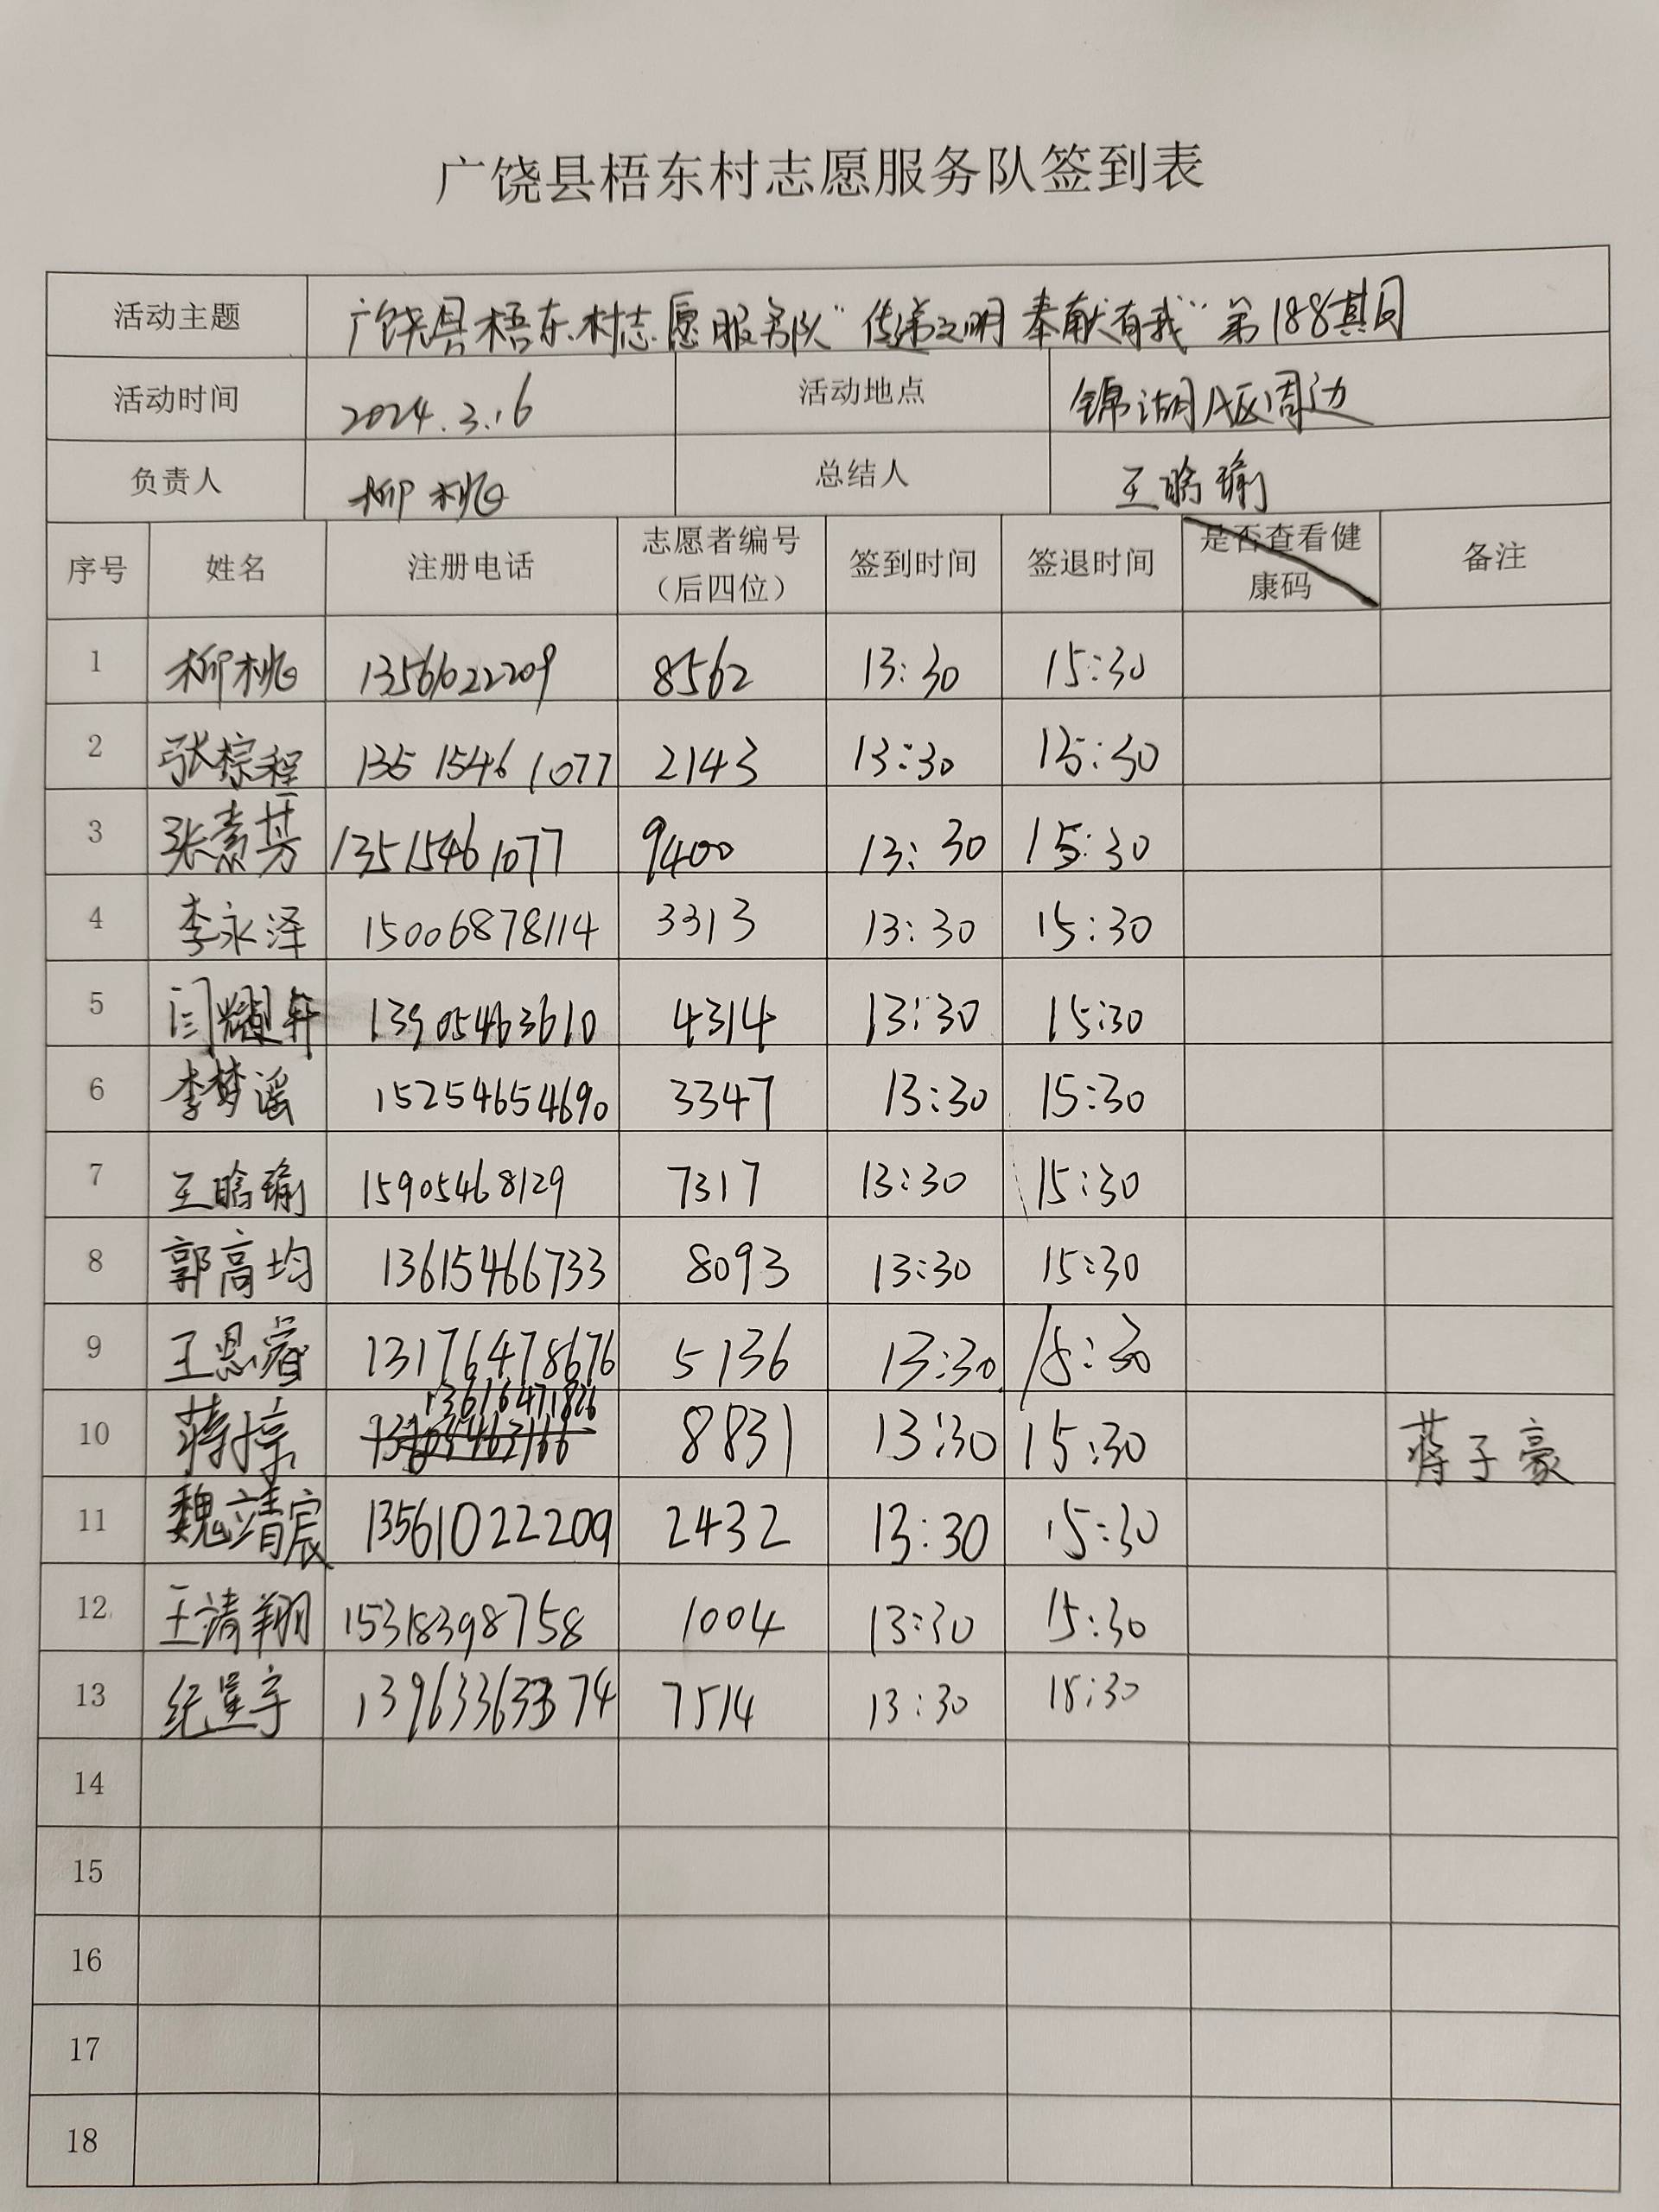 广饶县梧东村志愿服务队签到表
活动主题 广饶县梧东村志愿服务队“传递文明 奉献有我”第188期
活动时间 2024.3.16 活动地点 锦湖A区周边
负责人 柳桃 总结人 王晗瑜
序号 姓名 注册电话 志愿者编号（后四位） 签到时间 签退时间 是否查看健康码 备注
1 柳桃 8562 13:30 15:30
2 张棕程 13515461077 2143 13:30 15:30
3 张素英 13515461077 9400 13:30 15:30
4 李永泽 15006878114 3313 13:30 15:30
5 闫耀轩 13905463610 4314 13:30 15:30
6 李梦谣 15254654690 3347 13:30 15:30
7 王晗瑜 15905468129 7317 13:30 15:30
8 郭高均 13615466733 8093 13:30 15:30
9 王恩睿 13176478676 5136 13:30 15:30
10 8831 13:30 15:30 蒋子豪
11 魏靖宸 13561022209 2432 13:30 15:30
12 王靖翔 15318398758 1004 13:30 15:30
13 7514 13:30 15:30
14
15
16
17
18